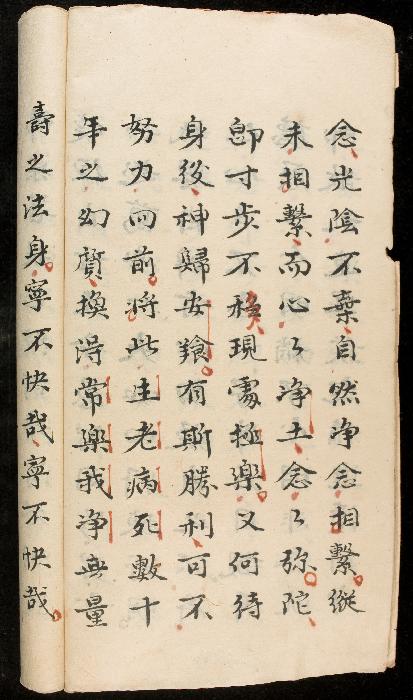 念光陰不棄自然净念相繫縱
未相繫而心〻净土念〻弥陀
即寸步不移現處極樂又何待
身後神歸安養有斯勝利可不
努力向前將此生老病死數十
年之幻質換得常樂我净無量
壽之法身寧不快哉寧不快哉